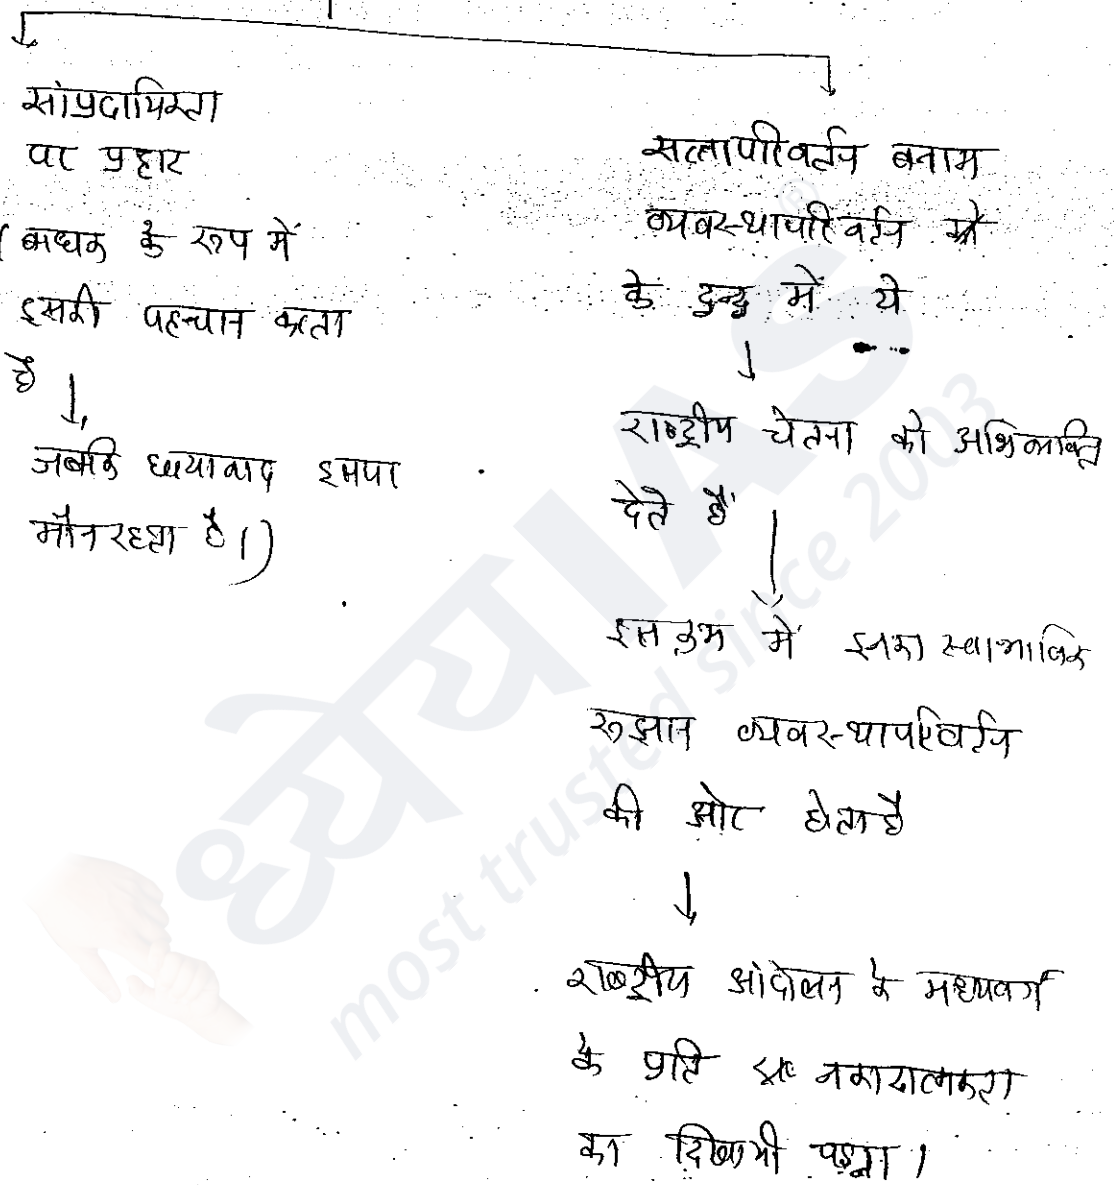 सांप्रदायिकता
पर प्रहार
( बाधक के रूप में
इसकी पहचान करता
है ↓
जबकि छायावाद इसपर
मौन रहता है।)
सत्तापरिवर्तन बनाम
व्यवस्थापरिवर्तन
के द्वन्द्व में ये
↓
राष्ट्रीय चेतना को अभिव्यक्ति
देते हैं
↓
इस क्रम में इनका स्वाभाविक
रुझान व्यवस्थापरिवर्तन
की ओर होता है
↓
राष्ट्रीय आंदोलन के मध्यवर्ग
के प्रति नकारात्मकता
का दिखायी पड़ना।
ध्येय IAS
®
most trusted since 2003